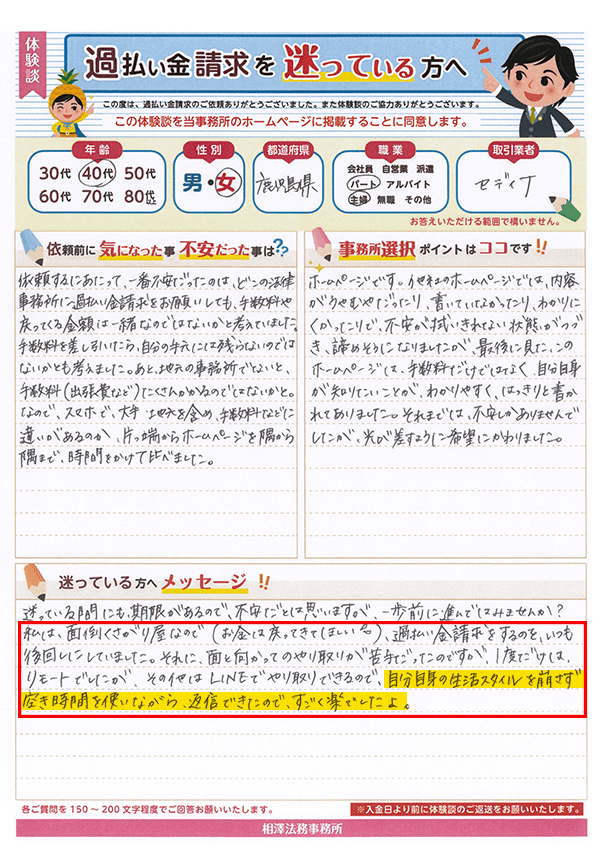 体験談
過払い金請求を迷っている方へ
この度は、過払い金請求のご依頼ありがとうございました。また体験談のご協力ありがとうございます。
この体験談を当事務所のホームページに掲載することに同意します。
年齢
30代 40代 50代
60代 70代 80代以上
性別
男・女
都道府県
鹿児島県
職業
会社員 自営業 派遣
パート アルバイト
主婦 無職 その他
取引業者
セディナ
お答えいただける範囲で構いません。
依頼前に気になった事 不安だった事は??
依頼するにあたって、一番不安だったのは、どこの法律
事務所に過払い金請求をお願いしても、手数料や
戻ってくる金額は一緒なのではないかと考えていました。
手数料を差し引いたら、自分の手元には残らないのでは
ないかとも考えました。あと、地元の事務所でないと、
手数料(出張費など)たくさんかかるのではないかと。
なので、スマホで、大手・地元を含め、手数料などに
違いがあるのか、片っ端からホームページを隅から
隅まで、時間をかけて比べました。
事務所選択ポイントはココです!!
ホームページです。他社のホームページでは、内容
がうやむやだったり、書いていなかったり、わかりに
くかったりで、不安が拭いきれない状態がつづ
き、諦めそうになりましたが、最後に見た、この
ホームページは、手数料だけではなく、自分自身
が知りたいことが、わかりやすく、はっきりと書か
れてありました。それまでは、不安しかありませんで
したが、光が差すように希望にかわりました。
迷っている方へメッセージ!!
迷っている間にも、期限があるので、不安だとは思いますが、一歩前に進んではみませんか?
私は、面倒くさがり屋なので(お金は戻ってきてほしい(笑))、過払い金請求をするのを、いつも
後回しにしていました。それに、面と向かってのやり取りが苦手だったのですが、1度だけは、
リモートでしたが、その他はLINEでやり取りできるので、自分自身の生活スタイルを崩さず
空き時間を使いながら、返信できたので、すごく楽でしたよ。
各ご質問を150~200文字程度でご回答お願いいたします。
※入金日より前に体験談のご返送をお願いいたします。
相澤法務事務所